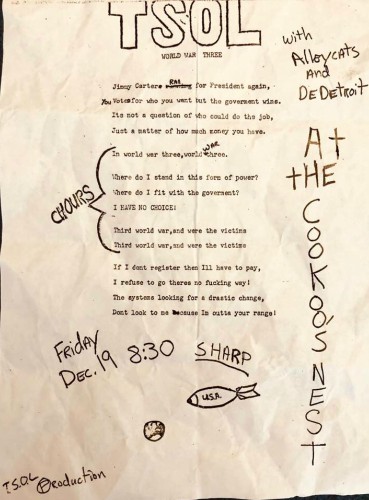 TSOL
WORLD WAR THREE
with
Alleycats
And
DeDetroit
At
tHE
COOKOO'S
NEST
Jimmy Carters running RAN for President again,
You Votes for who you want but the goverment wins.
Its not a question of who could do the job,
Just a matter of how much money you have.
CHOURS
In world war three,world WAR three.
Where do I stand in this form of power?
Where do I fit with the goverment?
I HAVE NO CHOICE!
Third world war,and were the victims
Third world war,and were the victims
If I dont register then Ill have to pay,
I refuse to go theres no fucking way!
The systems looking for a drastic change,
Dont look to me because Im outta your range!
FRIDAY
DEC. 19 8:30 SHARP
U.S.A.
T.S.O.L Production